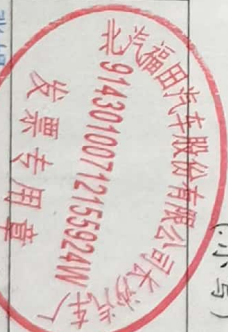 北汽福田汽车股份有限公司长沙汽车厂
91430100712155924W
发票专用章
小写)